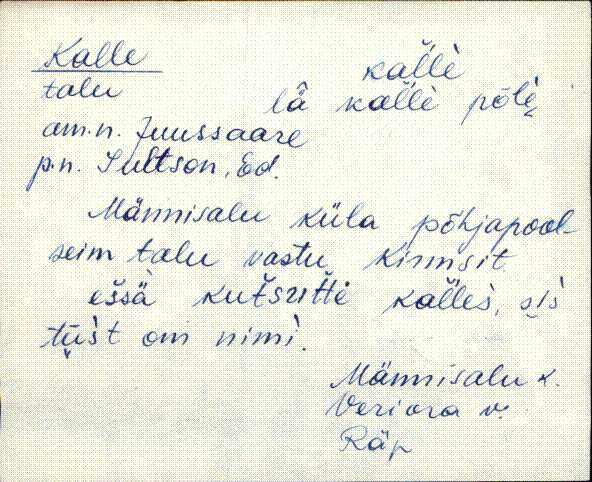 Kalle
kaľlè
talu
lä kaľlè põlè
am.n. Juussaare
p.n. Sultson, Ed.
Männisalu küla põhjapool-
seim talu vastu Kirmsit.
eśsä kutšuťti kaľlès, sìs
tüìst om nimì.
Männisalu k.
Veriora v.
Räp